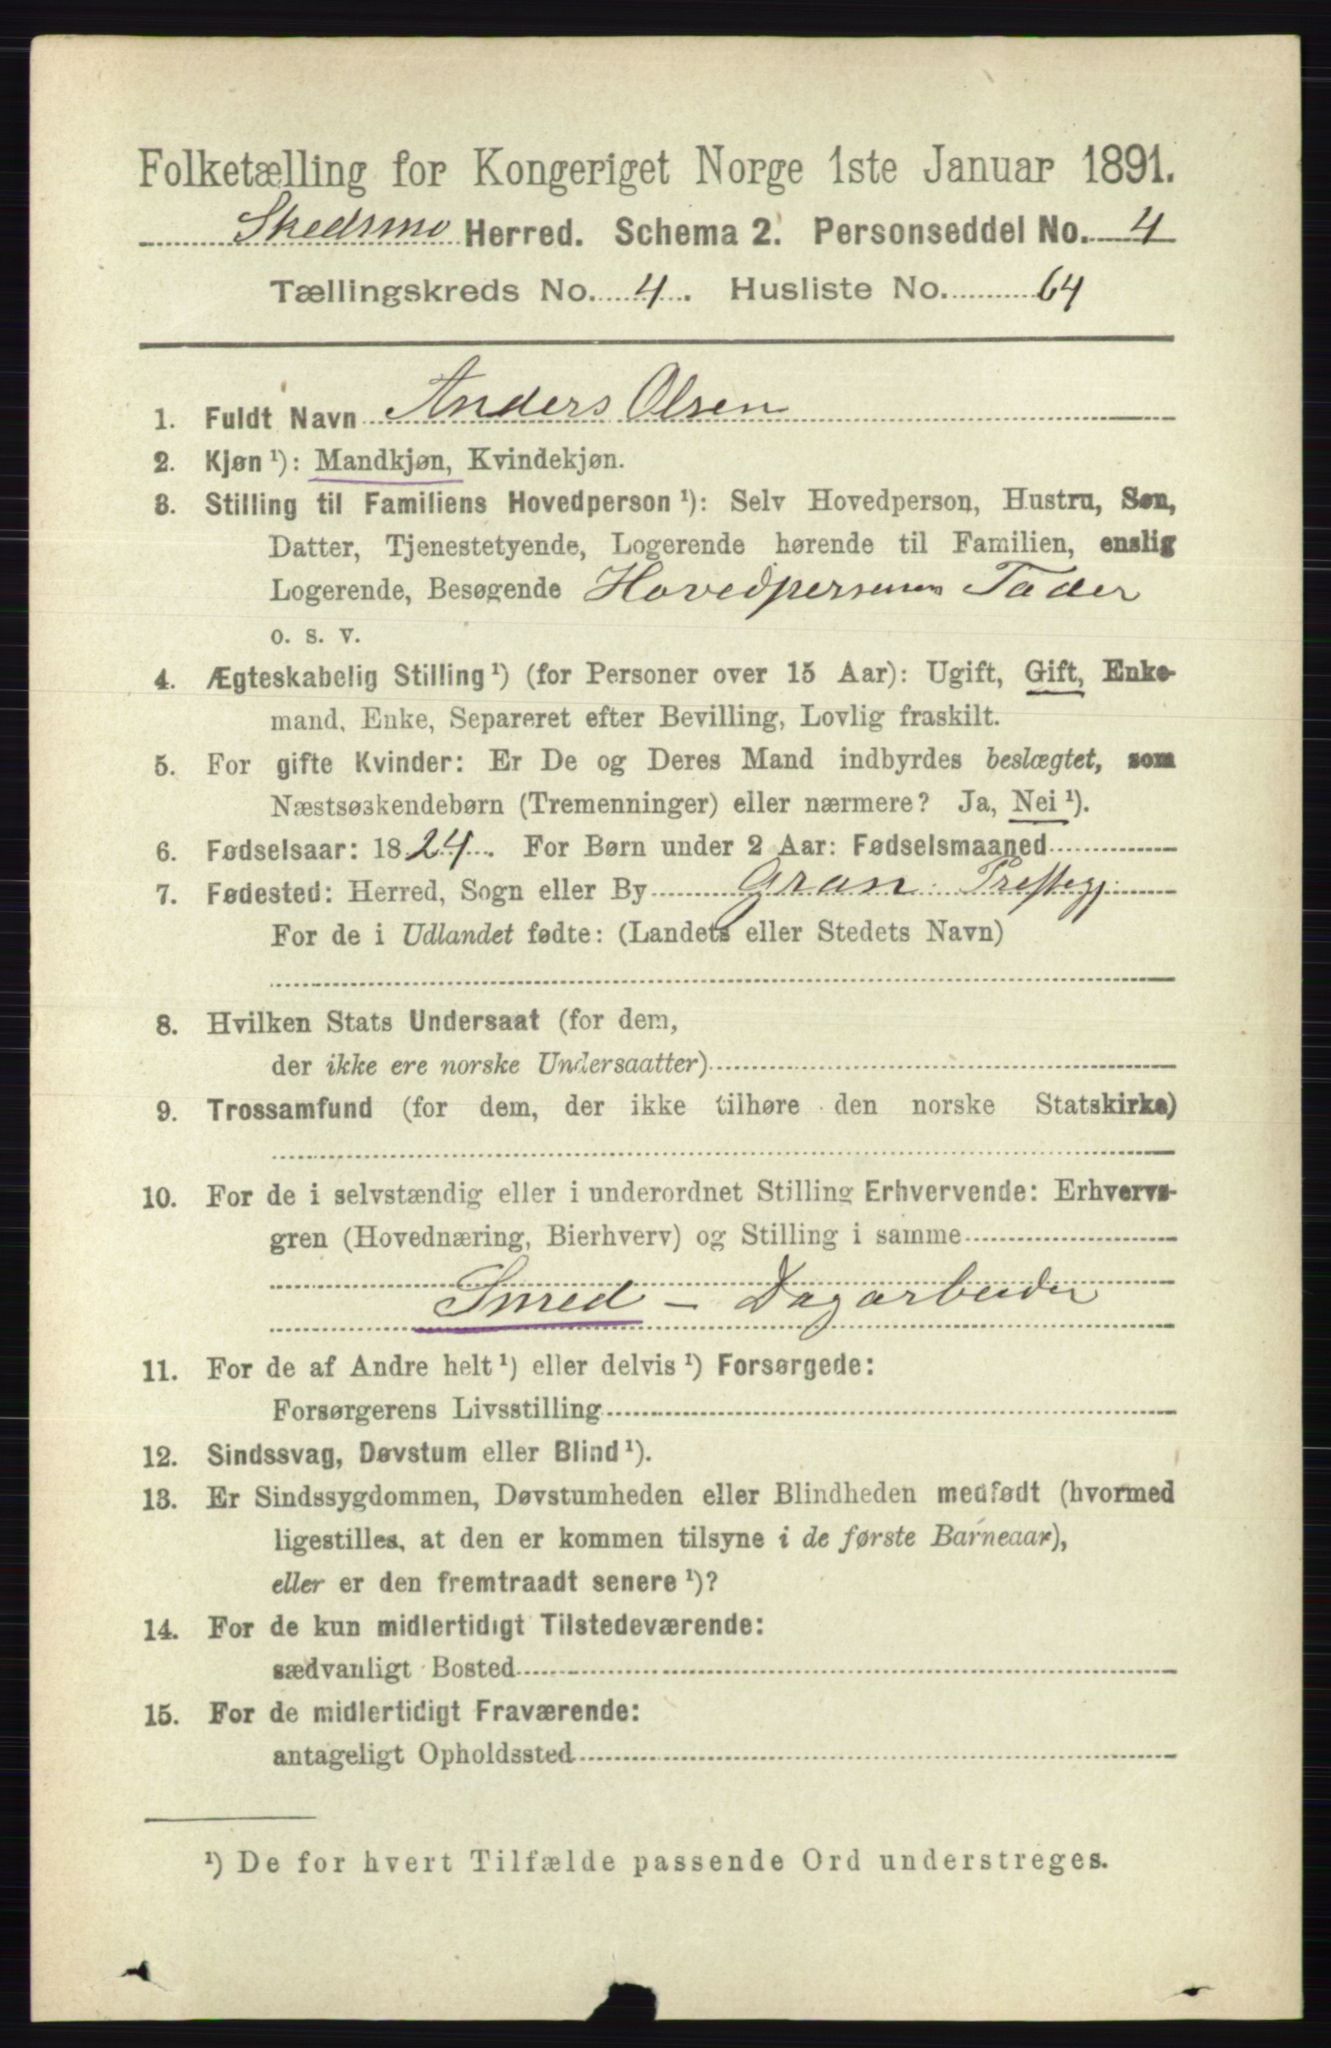 Folketælling for Kongeriget Norge 1ste Januar 1891.
Skedsmo Herred. Schema 2. Personseddel No. 4
Tællingskreds No. 4. Husliste No. 64
1. Fuldt Navn Anders Olsen
2. Kjøn ¹): Mandkjøn, Kvindekjøn.
3. Stilling til Familiens Hovedperson ¹): Selv Hovedperson, Hustru, Søn,
Datter, Tjenestetyende, Logerende hørende til Familien, enslig
Logerende, Besøgende Hovedpersonens Fader
o. s. v.
4. Ægteskabelig Stilling ¹) (for Personer over 15 Aar): Ugift, Gift, Enke-
mand, Enke, Separeret efter Bevilling, Lovlig fraskilt.
5. For gifte Kvinder: Er De og Deres Mand indbyrdes beslægtet, som
Næstsøskendebørn (Tremenninger) eller nærmere? Ja, Nei ¹).
6. Fødselsaar: 1824. For Børn under 2 Aar: Fødselsmaaned
7. Fødested: Herred, Sogn eller By Gran Prestegj.
For de i Udlandet fødte: (Landets eller Stedets Navn)
8. Hvilken Stats Undersaat (for dem,
der ikke ere norske Undersaatter)
9. Trossamfund (for dem, der ikke tilhøre den norske Statskirke)
10. For de i selvstændig eller i underordnet Stilling Erhvervende: Erhvervs-
gren (Hovednæring, Bierhverv) og Stilling i samme
Smed - Dagarbeider
11. For de af Andre helt ¹) eller delvis ¹) Forsørgede:
Forsørgerens Livsstilling
12. Sindssvag, Døvstum eller Blind ¹).
13. Er Sindssygdommen, Døvstumheden eller Blindheden medfødt (hvormed
ligestilles, at den er kommen tilsyne i de første Barneaar),
eller er den fremtraadt senere ¹)?
14. For de kun midlertidigt Tilstedeværende:
sædvanligt Bosted
15. For de midlertidigt Fraværende:
antageligt Opholdssted
¹) De for hvert Tilfælde passende Ord understreges.